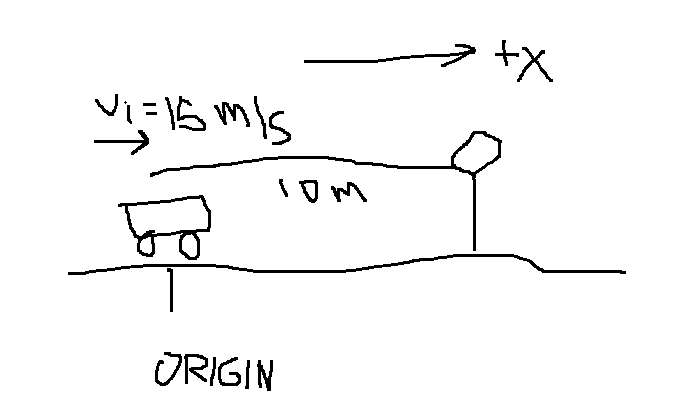 +X
Vi = 15 m/s
10m
ORIGIN